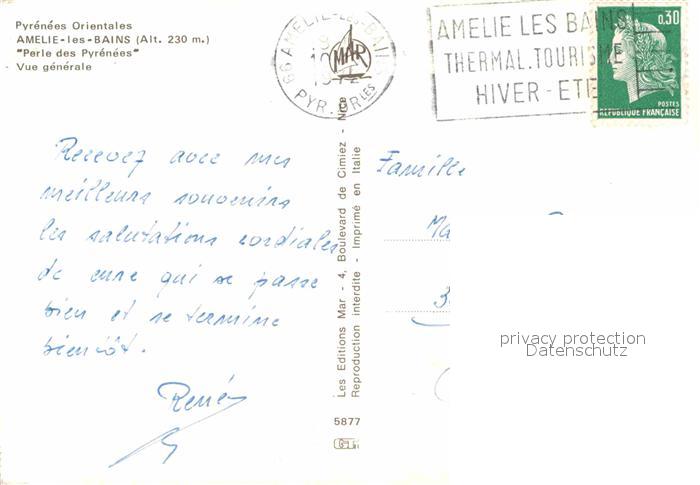 Pyrénées Orientales
AMELIE-les-BAINS (Alt. 230 m.)
"Perle des Pyrénées"
Vue générale
66 AMELIE-LES-BAINS
PYR. ORLES
MAR
AMELIE LES BAINS
THERMAL.TOURISME
HIVER-ETE
0,30
POSTES
REPUBLIQUE FRANÇAISE
Recevez avec mes
meilleurs souvenirs
les salutations cordiales
de cure qui se passe
bien et se termine
bientôt.
René
Les Editions Mar - 4, Boulevard de Cimiez - Nice
Reproduction interdite - Imprimé en Italie
5877
Famille
Ma
privacy protection
Datenschutz